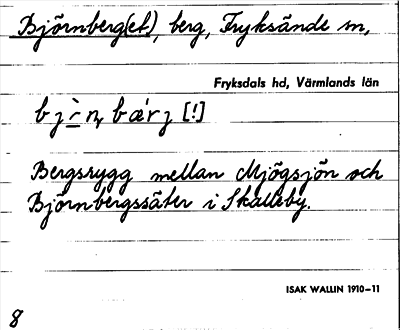 Björnberg(et), berg, Fryksände sn,
Fryksdals hd, Värmlands län
bjɩ̀n, bǽrj [!]
Bergsrygg mellan Mjögsjön och
Björnbergssäter i Skalleby.
ISAK WALLIN 1910–11
8